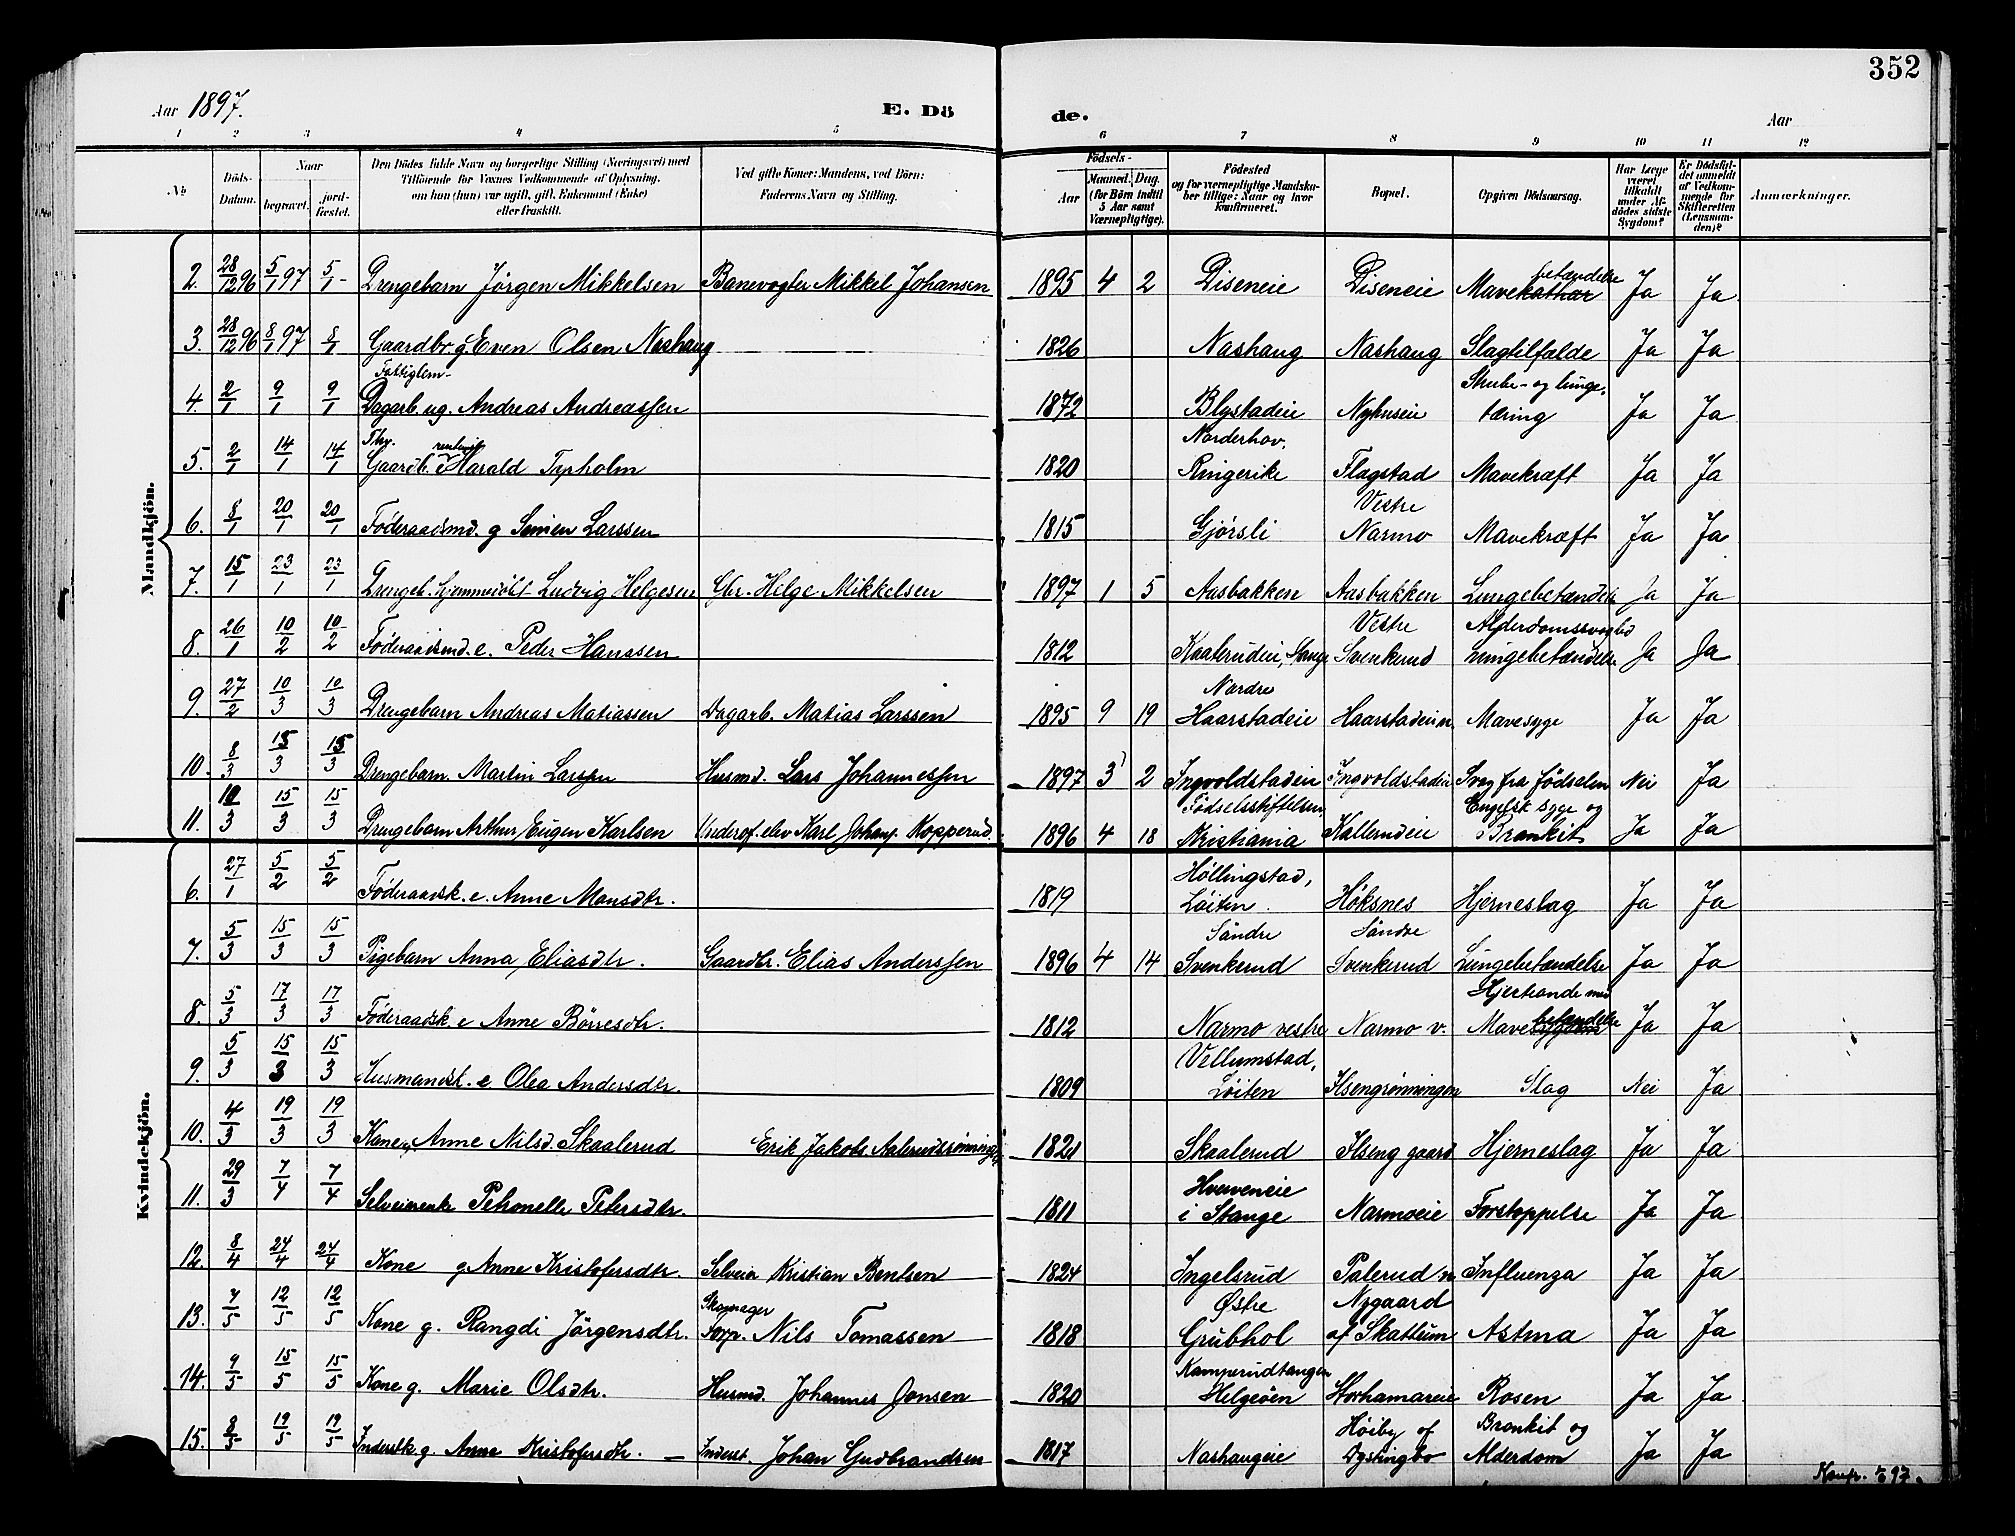 352
Aar 1897. E. Döde. Aar
1 2 3 4 5 6 7 8 9 10 11 12
No
Döds-Datum.
Naar begravet. jordfæstet.
Den Dödes fulde Navn og borgerlige Stilling (Næringsvei) med Tilföiende for Voxnes Vedkommende af Oplysning, om han (hun) var ugift, gift, Enkemand (Enke) eller fraskilt.
Ved gifte Koner: Mandens, ved Börn: Faderens Navn og Stilling.
Födsels- Aar Maaned. Dag. (for Börn indtil 5 Aar samt Værnepligtige).
Födested og for værnepligtige Mandskaber tillige: Naar og hvor konfirmeret.
Bopæl.
Opgiven Dödsaarsag.
Har Læge været tilkaldt under Afdödes sidste Sygdom?
Er Dödsfaldet anmeldt af Vedkommende for Skifteretten (Lensmanden)?
Anmærkninger.
Mandkjön.
2. 28/12 96 5/1 97 5/1 - Drengebarn Jørgen Mikkelsen Banevogter Mikkel Johansen 1895 4 2 Diseneie Diseneie Mavekathar betændelse Ja Ja
3. 28/12 96 8/1 97 8/1 Gaardbr. g Even Olsen Nashaug 1826 Nashaug Nashaug Slagtilfælde Ja Ja
4. 2/1 9/1 9/1 Fattiglem- Dagarb. ug. Andreas Andreassen 1872 Blystadeie Nyhuseie Strube- og lungetæring Ja Ja
5. 2/1 14/1 14/1 Fhv. Gaardb. e Harald Tapholm 1820 Norderhov, Ringerike Flagstad Mavekræft Ja Ja
6. 8/1 20/1 20/1 Føderaadsmd. g Simen Larssen 1815 Gjørsli Vestre Narmo Mavekræft Ja Ja
7. 15/1 23/1 23/1 Drengeb. hjemmedøbt Ludvig Helgesen Gbr. Helge Mikkelsen 1897 1 5 Aasbakken Aasbakken Lungebetændelse Ja Ja
8. 26/1 10/2 10/2 Føderaadsmd. e. Peder Hanssen 1812 Kaalerudeie, Stange Vestre Svenkerud Alderdomssvaghed Lungebetændelse Ja Ja
9. 27/2 10/3 10/3 Drengebarn Andreas Matiassen Dagarb. Matias Larssen 1895 9 19 Nordre Haarstadeie Haarstadeie n. Mavesyge Ja Ja
10. 8/3 15/3 15/3 Drengebarn. Martin Larssen Husmd. Lars Johannessen 1897 3 2 Ingvoldstadeie Ingvoldstadeie Svag fra fødselen Nei Ja
11. 10/3 15/3 15/3 Drengebarn Arthur Eugen Karlsen Underof. elev Karl Johans. Kopperud. 1896 4 18 Fødselsstiftelsen, Kristiania Kallerudeie Engelsk syge og Bronkit Ja Ja
Kvindekjön.
6. 27/1 5/2 5/2 Føderaadsk. e. Anne Monsdtr. 1819 Høllingstad, Løiten. Høksnes Hjerneslag Ja Ja
7. 5/3 15/3 15/3 Pigebarn Anna Eliasdtr. Gaardbr. Elias Anderssen 1896 4 14 Søndre Svenkerud Søndre Svenkerud Lungebetændelse Ja Ja
8. 5/3 17/3 17/3 Føderaadsk e Anne Børresdtr. 1812 Narmo vestre Narmo v. Hjerteonde med Mavebetændelse Ja Ja
9. 5/3 15/3 15/3 Husmandsk. e Olea Andersdtr. 1809 Vellumstad, Løiten Ilsengrønningen Slag Nei Ja
10. 4/3 19/3 19/3 Kone, Anne Nilsd. Skaalerud Erik Jakobs. Aalerudsrønningen 1821 Skaalerud Ilseng gaard Hjerneslag Ja Ja
11. 29/3 7/4 7/4 Selveierenke Petronelle Petersdtr. 1811 Hverveneie i Stange Narmoeie Forstoppelse Ja Ja
12. 8/4 24/4 24/4 Kone g. Anne Kristofersdtr. Selveier Kristian Bentsen 1824 Ingelsrud Palerud n. Influenza Ja Ja
13. 7/5 12/5 12/5 Kone g. Rangdi Jørgensdtr. Skomager Torp. Nils Tomassen 1818 Østre Grubhol Nygaard af Skattum Astma Ja Ja
14. 9/5 15/5 15/5 Kone g. Marie Olsdtr. Husmd. Johannes Jonsen 1820 Kamperudtangen Helgøen Storhamareie Rosen Ja Ja
15. 8/5 19/5 19/5 Inderstk g. Anne Kristofersdtr. — Inderst. Johan Gudbrandsen 1817 Nashaugeie Høiby af Dystingbo Bronkit og Alderdom Ja Ja